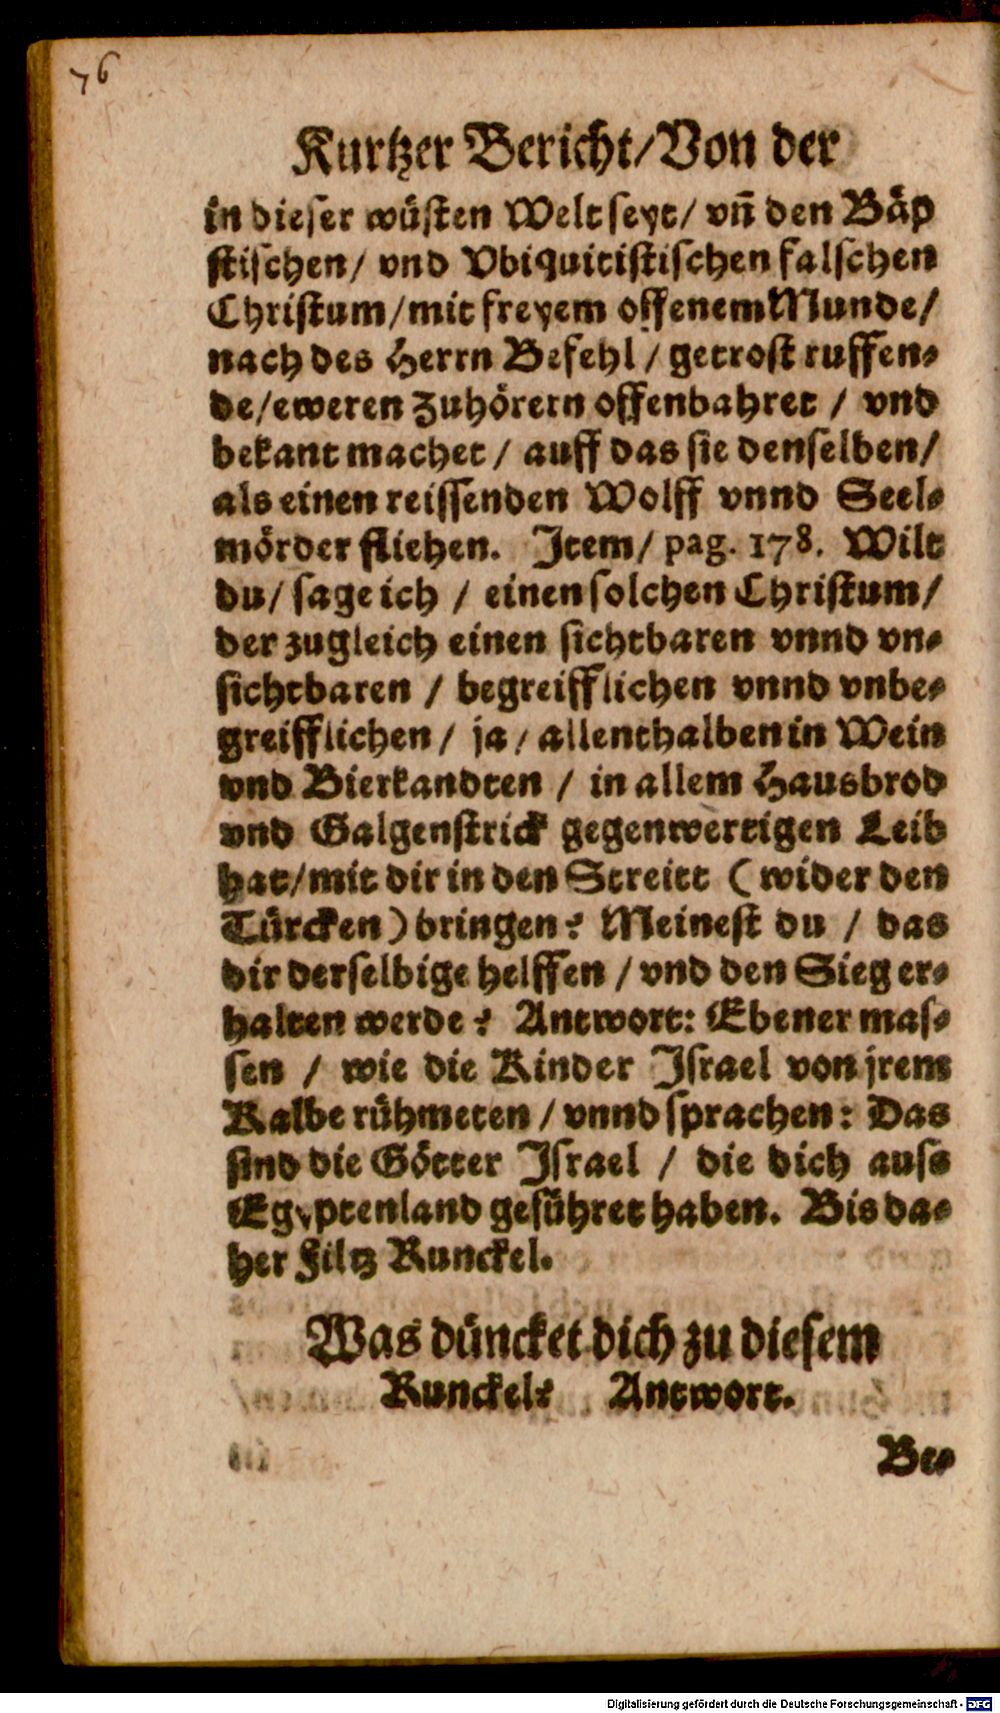 76
Kurtzer Bericht/Von der
in dieser wüsten Welt seyt/ vñ den Bäp
stischen/ vnd Vbiquitistischen falschen
Christum/mit freyem offenem Munde/
nach des Herrn Befehl / getrost ruffen-
de/eweren Zuhörern offenbahret / vnd
bekant machet / auff das sie denselben/
als einen reissenden Wolff vnnd Seel-
mörder fliehen. Item/ pag. 178. Wilt
du/ sage ich / einen solchen Christum/
der zugleich einen sichtbaren vnnd vn-
sichtbaren / begreifflichen vnnd vnbe-
greifflichen/ ja/ allenthalben in Wein
vnd Bierkandten / in allem Hausbrod
vnd Galgenstrick gegenwertigen Leib
hat/mit dir in den Streitt (wider den
Türcken) bringen? Meinest du / das
dir derselbige helffen / vnd den Sieg er-
halten werde? Antwort: Ebener mas-
sen / wie die Kinder Israel von jrem
Kalbe rühmeten / vnnd sprachen: Das
sind die Götter Israel / die dich auss
Egyptenland geführet haben. Bis da-
her Filtz Runckel.
Was düncket dich zu diesem
Runckel? Antwort.
Be-
Digitalisierung gefördert durch die Deutsche Forschungsgemeinschaft - DFG